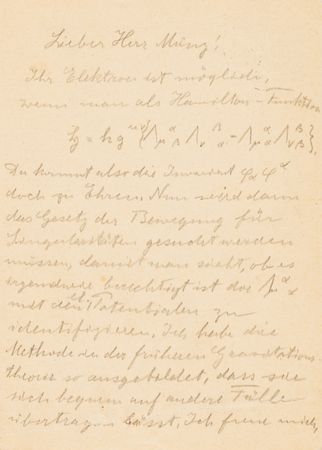 Lieber Herr Müntz!
Ihr Elektron ist möglich,
wenn man als Hamilton-Funktion
h = h g^{μν} {Λ_μ^α_β Λ_ν^β_α - Λ_μ^α_α Λ_ν^β_β}.
Da kommt also die Invariant φ_α φ^α
doch zu Ehren. Nun wird dann
das Gesetz der Bewegung für
Singularitäten gesucht werden
müssen, damit man sieht, ob es
irgendwie berechtigt ist die Λ_μ^α_α
mit den el. Potentialen zu
identifizieren. Ich habe die
Methode in der früheren Gravitations-
theorie so ausgebildet, dass sie
sich bequem auf andere Fälle
übertragen lässt. Ich freue mich,